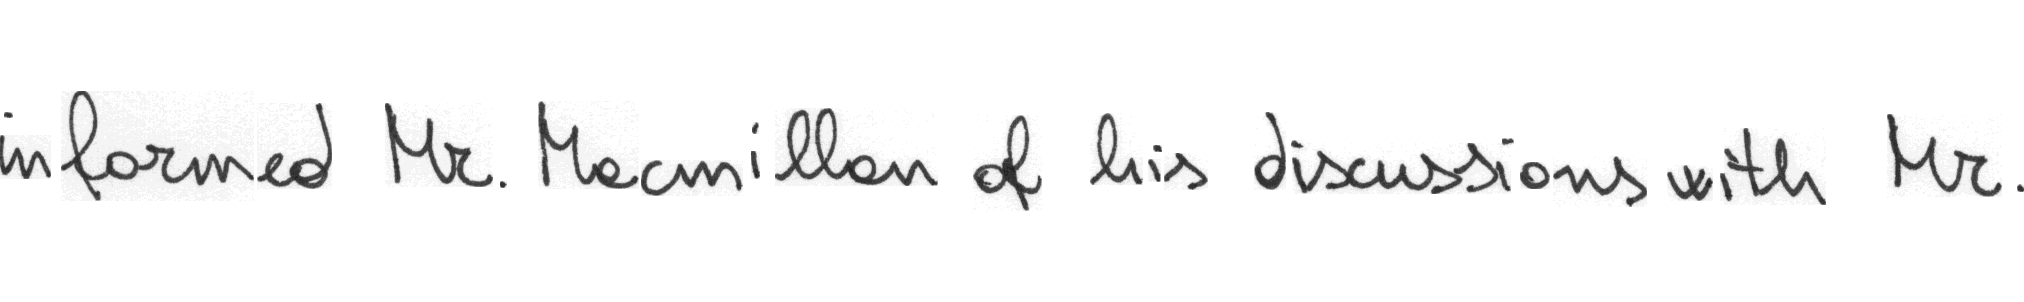 informed Mr. Macmillan of his discussions with Mr.